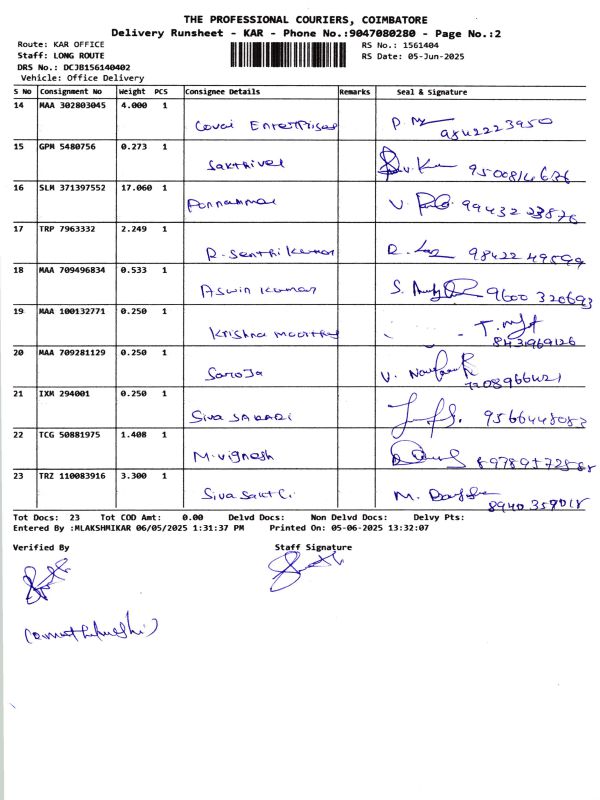 THE PROFESSIONAL COURIERS, COIMBATORE
Delivery Runsheet - KAR - Phone No.:9047080280 - Page No.:2
Route: KAR OFFICE RS No.: 1561404
Staff: LONG ROUTE RS Date: 05-Jun-2025
DRS No.: DCJB156140402
Vehicle: Office Delivery
S No Consignment No Weight PCS Consignee Details Remarks Seal & Signature
14 MAA 302803045 4.000 1
Covai Enterprises 9842223950
15 GPM 5480756 0.273 1
Sakthivel
16 SLM 371397552 17.060 1
Ponnammal V. 99432 23876
17 TRP 7963332 2.249 1
R. Senthil Kumar 98422 49599
18 MAA 709496834 0.533 1
Aswin Kumar S. 9600 320693
19 MAA 100132771 0.250 1
Krishna moorthy T.
20 MAA 709281129 0.250 1
Saroja V.
21 IXM 294001 0.250 1
Siva SABARI 9566448083
22 TCG 50881975 1.408 1
M. Vignesh
23 TRZ 110083916 3.300 1
Siva Sakti M.
8940 359018
Tot Docs: 23 Tot COD Amt: 0.00 Delvd Docs: Non Delvd Docs: Delvy Pts:
Entered By :MLAKSHMIKAR 06/05/2025 1:31:37 PM Printed On: 05-06-2025 13:32:07
Verified By Staff Signature